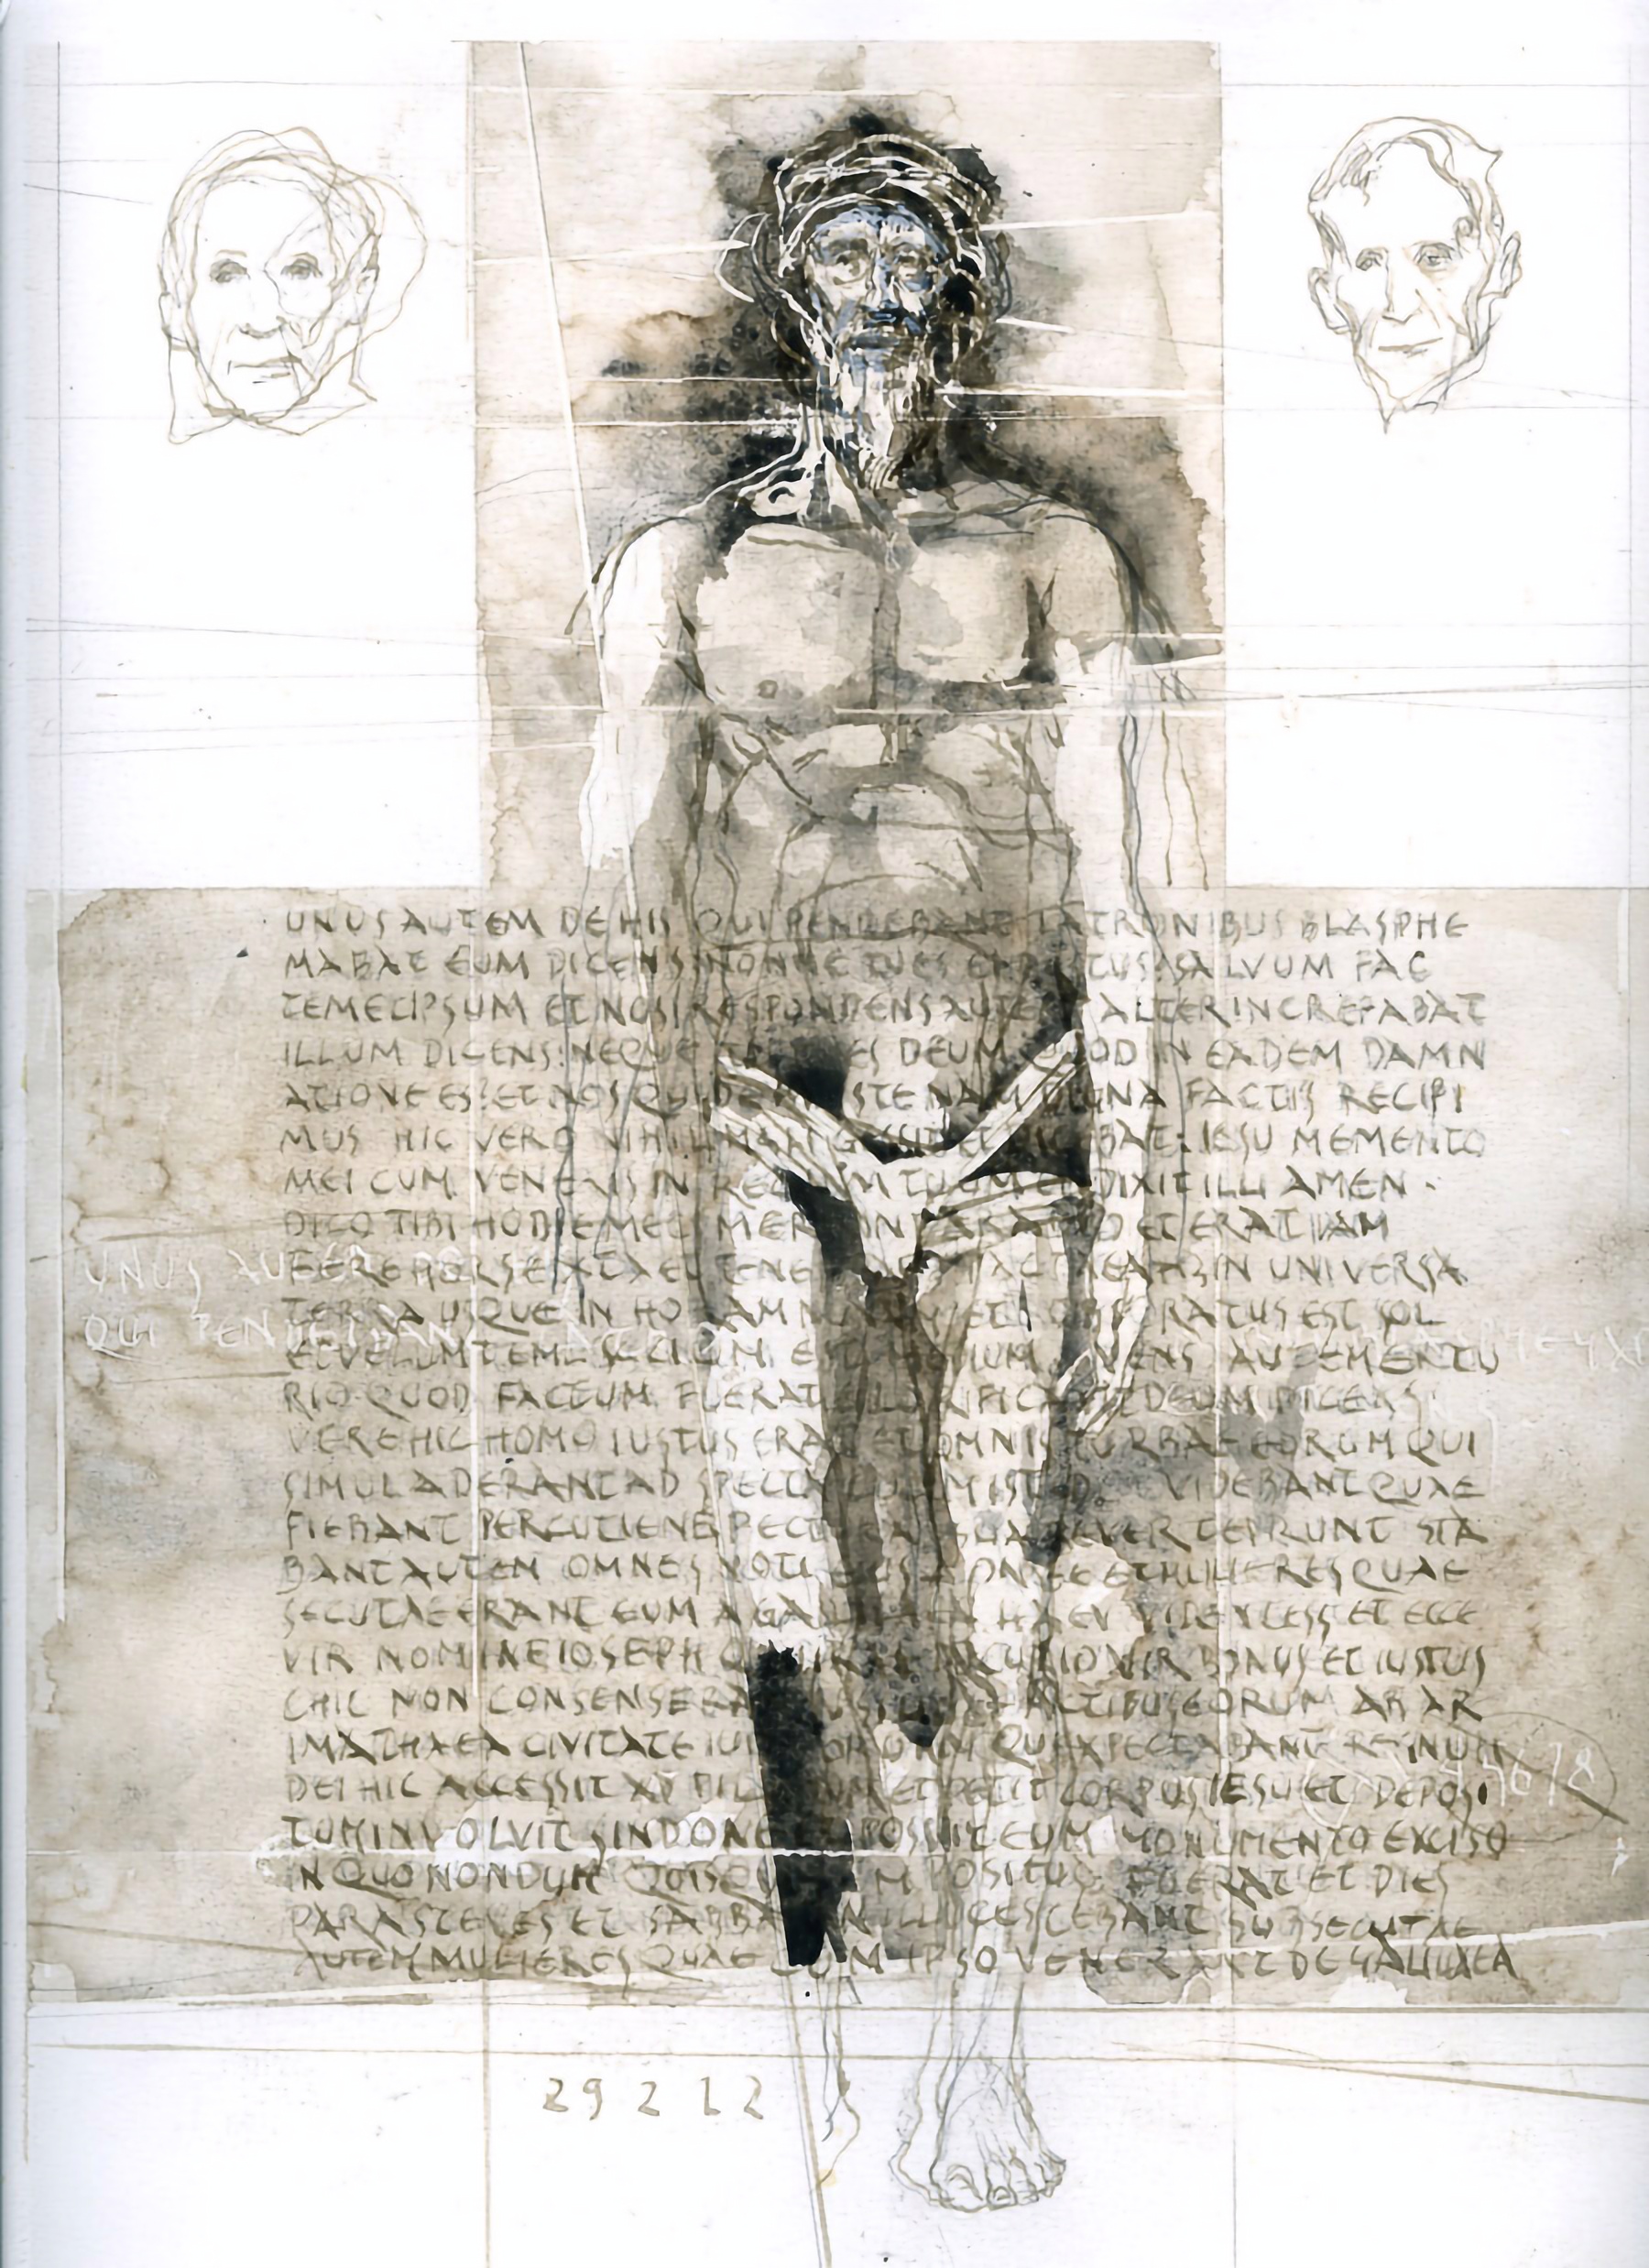 UNUS AUTEM DE HIS QUI PENDEBANT LATRONIBUS BLASPHE
MABAT EUM DICENS NONNE TU ES SALVUM FAC
TEMETIPSUM ET NOS RESPONDENS AUTEM ALTER INCREPABAT
ILLUM DICENS: NEQUE TIMES DEUM QUOD IN EADEM DAMN
ATIONE ES? ET NOS QUIDEM IUSTE NAM DIGNA FACTIS RECIPI
MUS HIC VERO NIHIL MALI GESSIT ET DICEBAT: IESU MEMENTO
MEI CUM VENERIS IN REGNUM TUUM ET DIXIT ILLI AMEN
DICO TIBI HODIE MECUM ERIS IN PARADISO ET ERAT IAM
FERE HORA SEXTA ET TENEBRAE FACTAE IN UNIVERSA
TERRA USQUE IN HORAM NONAM ET OBSCURATUS EST SOL
ET VELUM TEMPLI EST MEDIUM VIDENS AUTEM CENTU
RIO QUOD FACTUM FUERAT GLORIFICAVIT DEUM DICENS
VERE HIC HOMO IUSTUS ERAT ET OMNIS TURBA EORUM QUI
SIMUL ADERANT AD SPECTACULUM ISTUD VIDEBANT QUAE
FIEBANT PERCUTIENE PECTORA SUA REVERTEBRUNT STA
BANT AUTEM OMNES NOTI EIUS A LONGE ET MULIERES QUAE
SECUTAE ERANT EUM A GALILAEA HAEC VIDENTESS ET ECCE
VIR NOMINE IOSEPH QUI ERAT DECURIO VIR BONUS ET IUSTUS
CHIC NON CONSENSERAT CONSILIO ET ACTIBUS EORUM AB AR
IMATHAEA CIVITATE IUDAEORUM QUI EXPECTABANT REGNUM
DEI HIC ACCESSIT AD PILATUM ET PETIT CORPUS IESU ET DEPOSI
TUM INVOLVIT SINDONE ET POSUIT EUM MONUMENTO EXCISO
IN QUO NONDUM QUISQUAM POSITUS FUERAT ET DIES
PARASCEVES ET SABBATUM ILLUCESCEBANT SUBSECUTAE
AUTEM MULIERES QUAE CUM IPSO VENERANT DE GALILAEA
UNUS AUTEM DE
QUI PENDEBANT
29 2 12